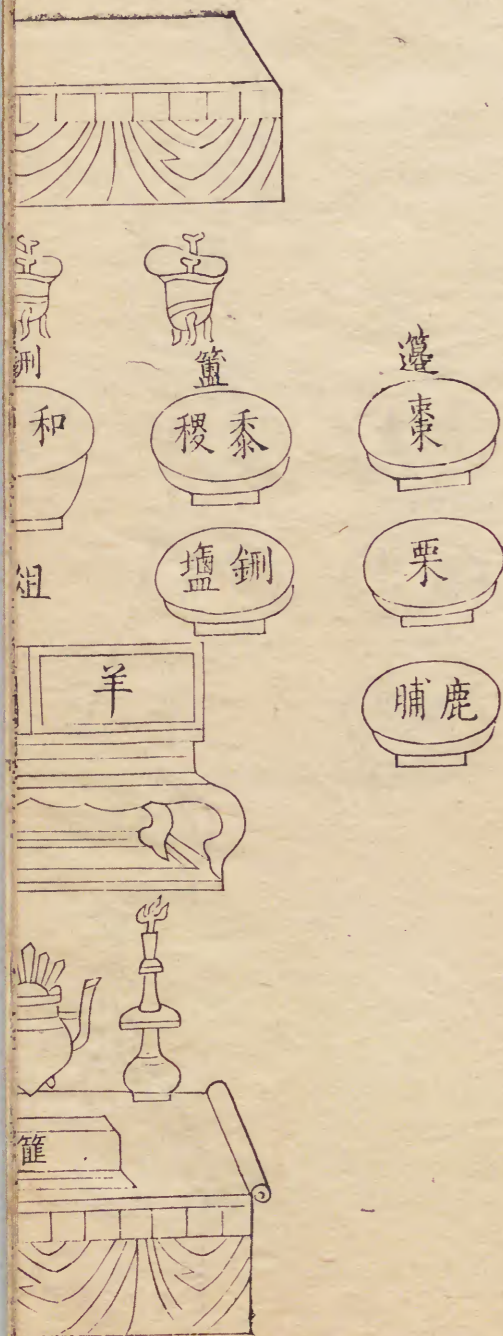 籩
棗
栗
鹿脯
簠
黍稷
鉶塩
羊
和
俎
篚